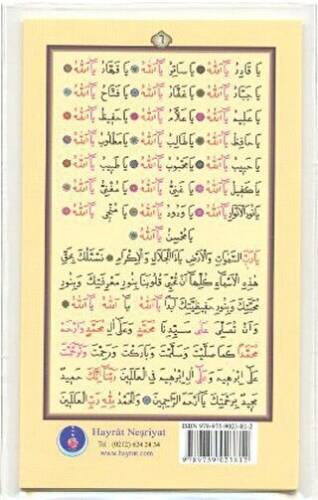 ٦
يَا قَادِرُ يَا اَللهُ يَا سَاتِرُ يَا اَللهُ يَا قَهَّارُ يَا اَللهُ
يَا جَبَّارُ يَا اَللهُ يَا غَفَّارُ يَا اَللهُ يَا فَتَّاحُ يَا اَللهُ
يَا عَلِيمُ يَا اَللهُ يَا عَلَّامُ يَا اَللهُ يَا حَفِيظُ يَا اَللهُ
يَا حَافِظُ يَا اَللهُ يَا طَالِبُ يَا اَللهُ يَا مَطْلُوبُ يَا اَللهُ
يَا حَبِيبُ يَا اَللهُ يَا مَحْبُوبُ يَا اَللهُ يَا طَبِيبُ يَا اَللهُ
يَا كَفِيلُ يَا اَللهُ يَا غَنِيُّ يَا اَللهُ يَا مُغْنِي يَا اَللهُ
يَا نُورَ الْاَنْوَارِ يَا اَللهُ يَا وَدُودُ يَا اَللهُ يَا مُنْجِي يَا اَللهُ
يَا مُحْسِنُ يَا اَللهُ
يَا رَبَّ السَّمٰوَاتِ وَالْاَرْضِ يَا ذَا الْجَلَالِ وَالْاِكْرَامِ نَسْئَلُكَ بِحَقِّ
هٰذِهِ الْاَسْمَاءِ كُلِّهَا اَنْ تُحْيِيَ قُلُوبَنَا بِنُورِ مَعْرِفَتِكَ وَبِنُورِ
مَحَبَّتِكَ وَبِنُورِ حَفِيظِيَّتِكَ اَبَدًا يَا اَللهُ يَا اَللهُ يَا اَللهُ
وَاَنْ تُصَلِّيَ عَلٰى سَيِّدِنَا مُحَمَّدٍ وَعَلٰى اٰلِ مُحَمَّدٍ وَارْحَمْ
مُحَمَّدًا كَمَا صَلَّيْتَ وَسَلَّمْتَ وَبَارَكْتَ وَرَحِمْتَ وَتَرَحَّمْتَ
عَلٰى اِبْرٰهِيمَ وَعَلٰى اٰلِ اِبْرٰهِيمَ فِي الْعَالَمِينَ رَبَّنَا اِنَّكَ حَمِيدٌ
مَجِيدٌ بِرَحْمَتِكَ يَا اَرْحَمَ الرَّاحِمِينَ وَالْحَمْدُ لِلّٰهِ رَبِّ الْعَالَمِينَ
Hayrât Neşriyat
Tel : (0212) 624 24 34
www.hayrat.com
ISBN 978-975-9023-81-2
9789759023812